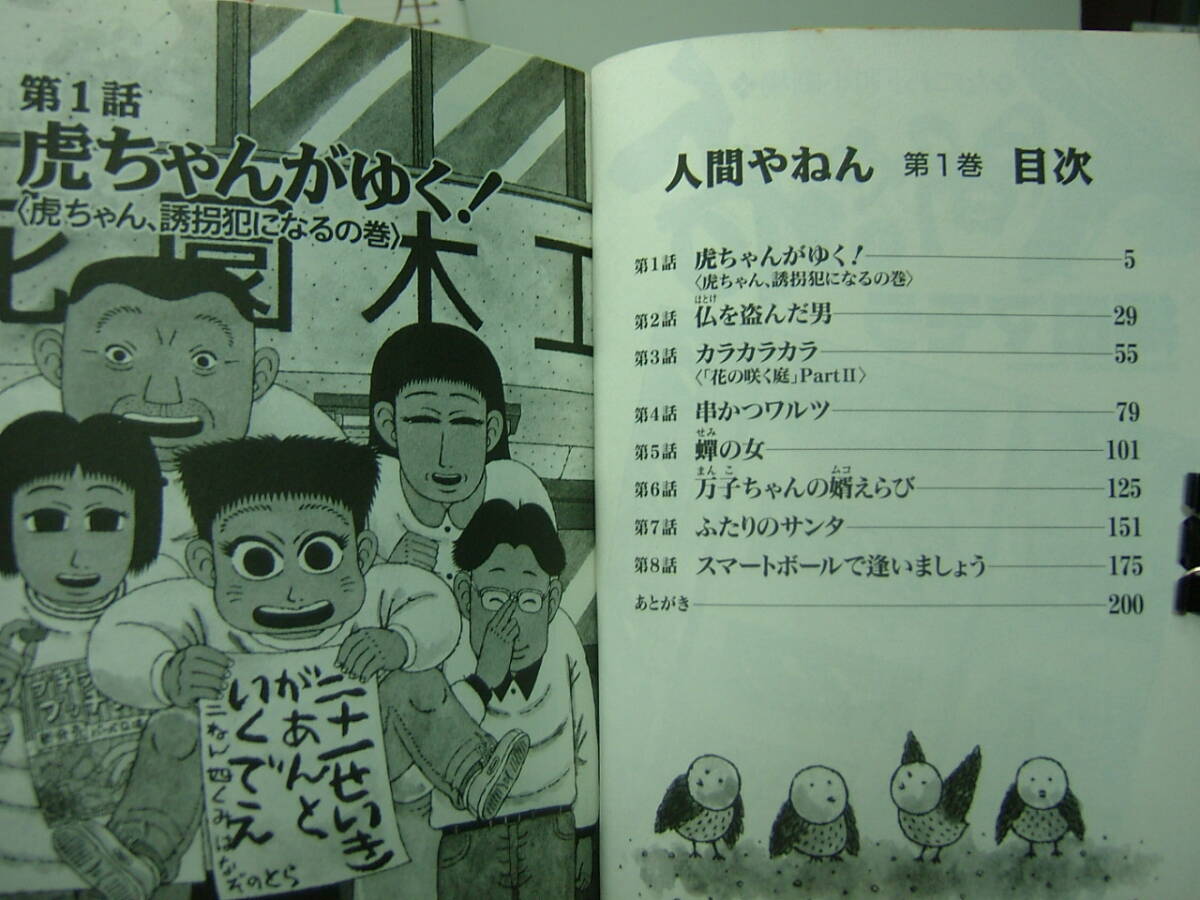 第1話
虎ちゃんがゆく!
〈虎ちゃん、誘拐犯になるの巻〉
園木工
二十一せいき
があんと
いくでえ
二ねん四くみ はなぞのとら
人間やねん 第1巻 目次
第1話 虎ちゃんがゆく! 5
〈虎ちゃん、誘拐犯になるの巻〉
はとけ
第2話 仏を盗んだ男 29
第3話 カラカラカラ 55
〈「花の咲く庭」PartⅡ〉
第4話 串かつワルツ 79
せみ
第5話 蟬の女 101
まんこ ムコ
第6話 万子ちゃんの婿えらび 125
第7話 ふたりのサンタ 151
第8話 スマートボールで逢いましょう 175
あとがき 200